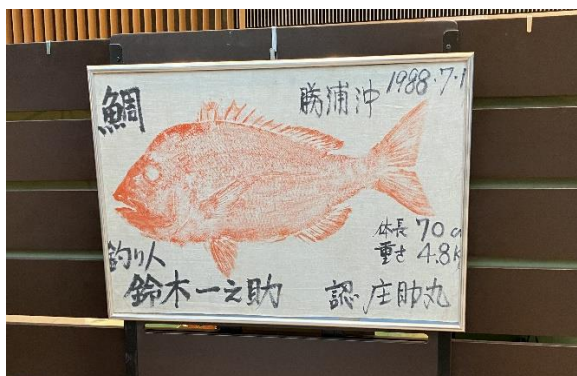 鯛
勝浦沖 1988・7・1
体長 70c
重さ 4.8k
釣り人
鈴木一之助
認 庄助丸